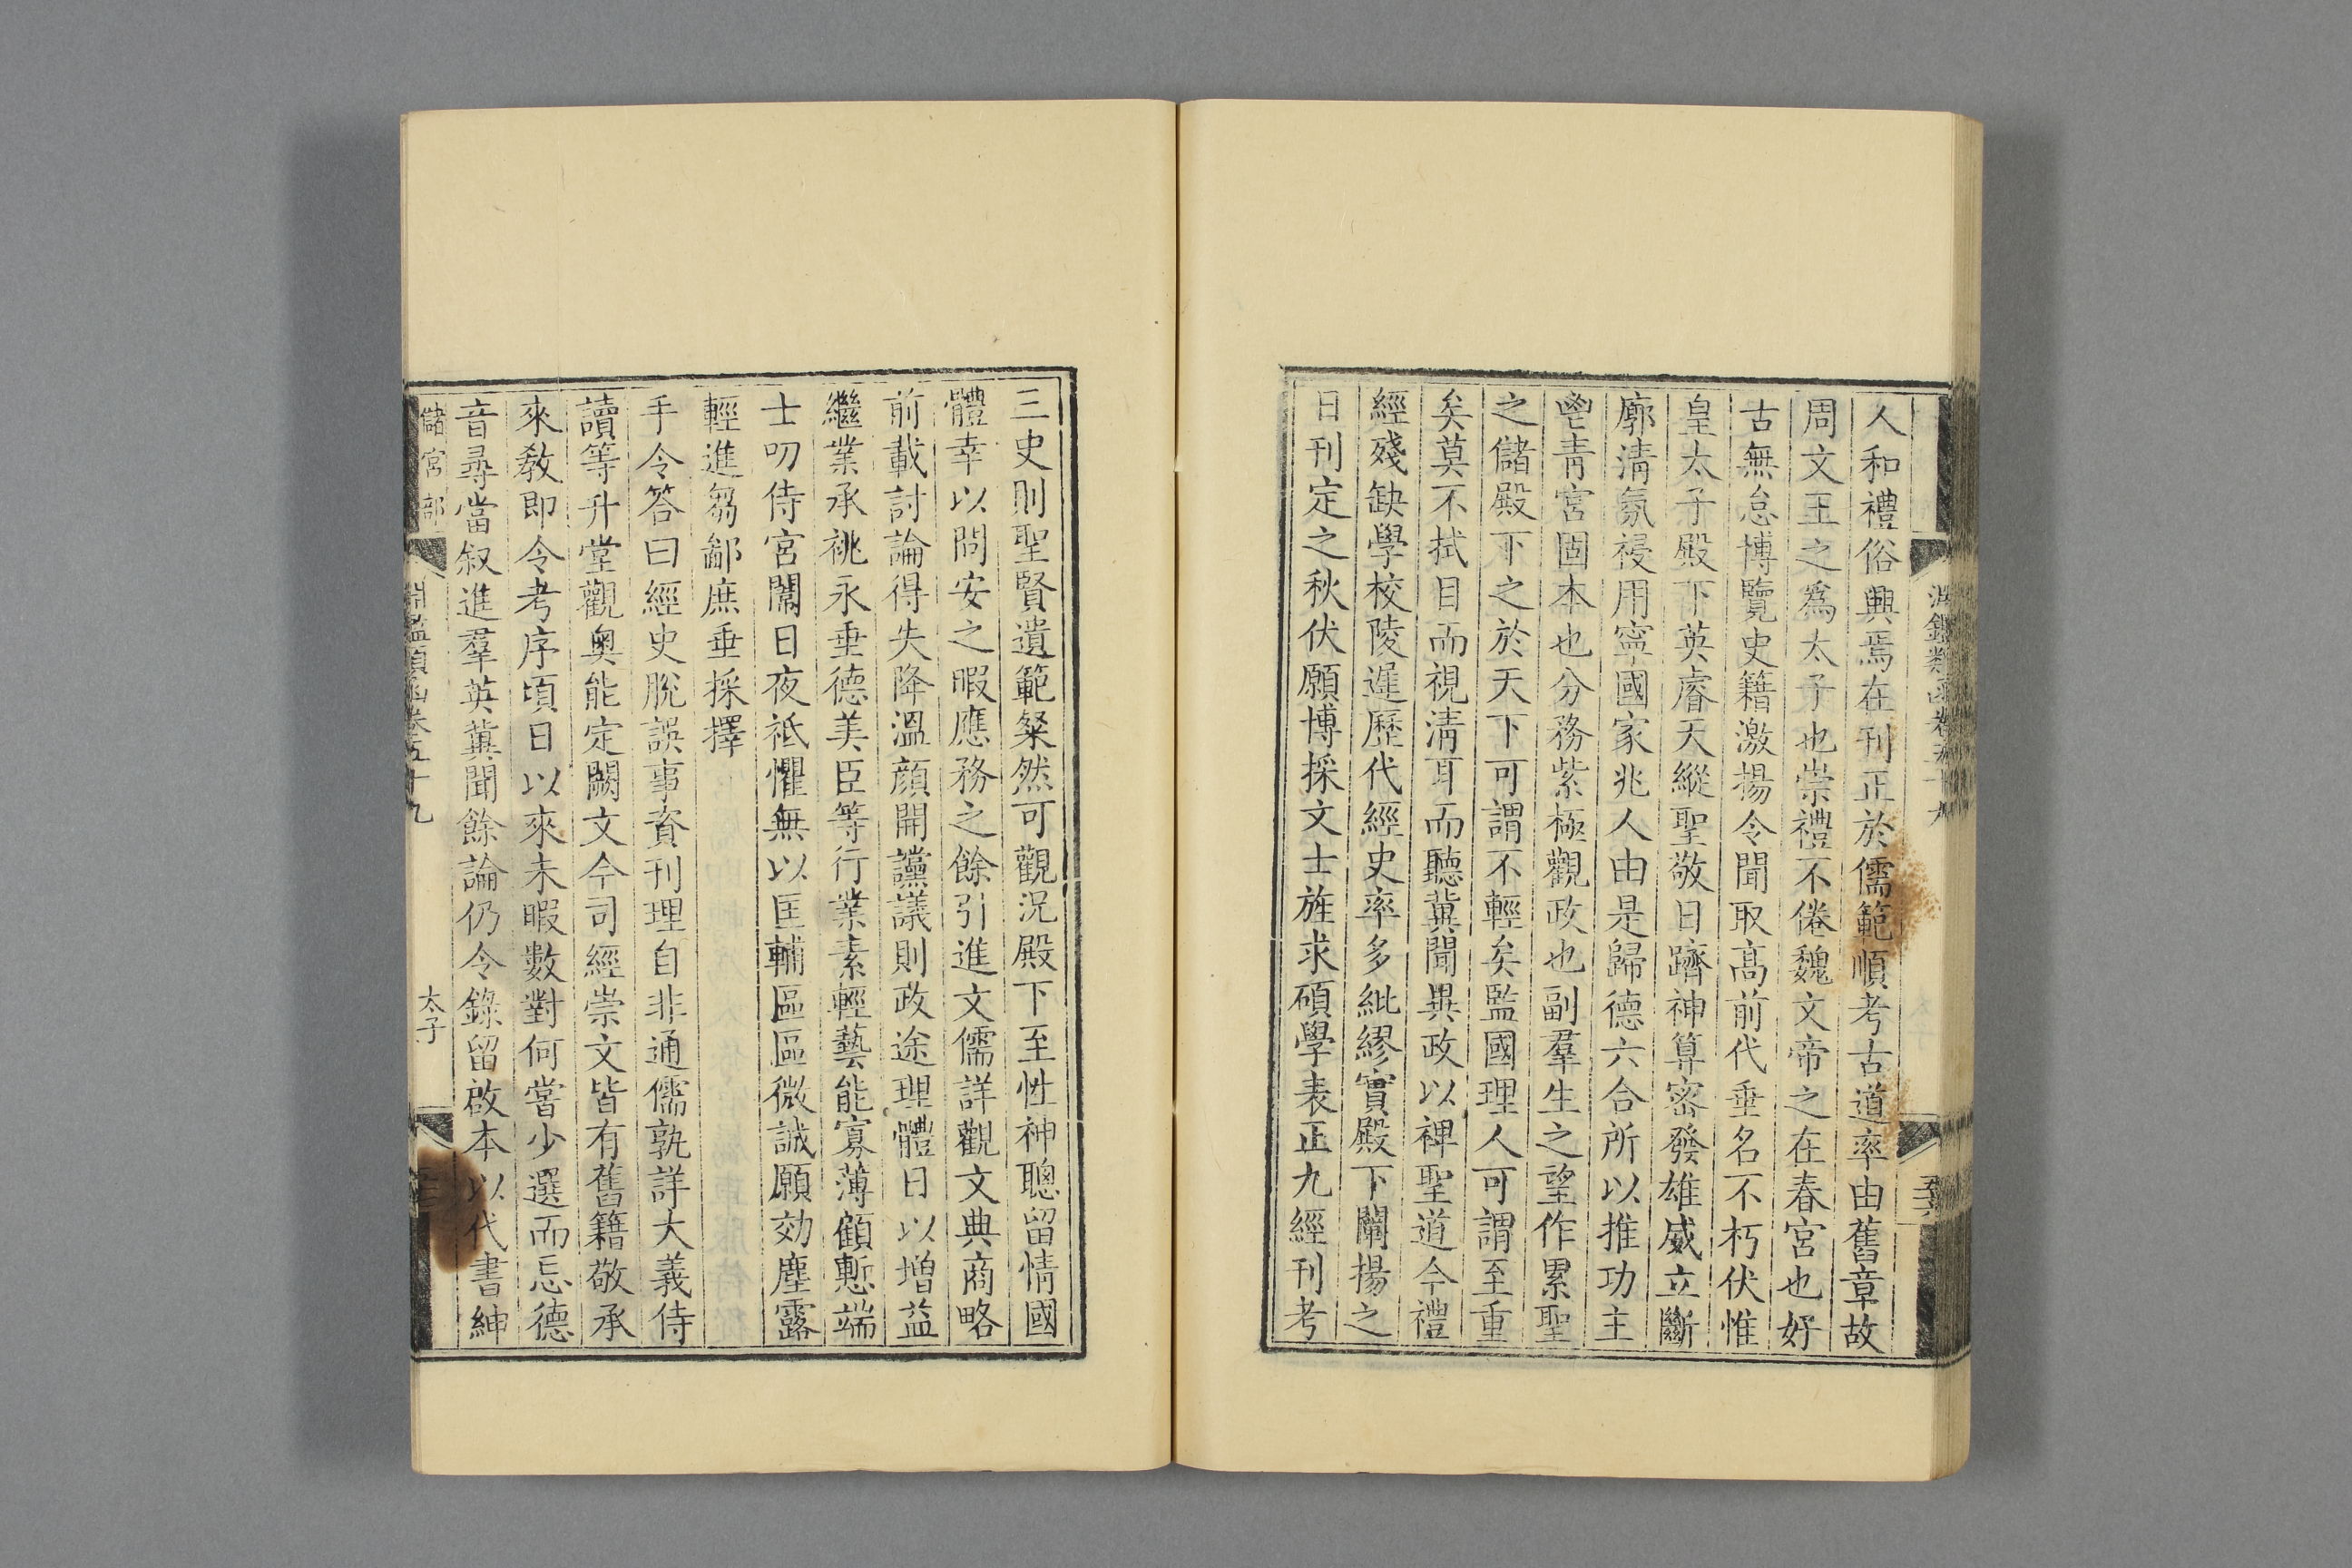 人和禮俗興焉在刊正於儒範順考古道率由舊章故
周文王之爲太子也崇禮不倦魏文帝之在春宮也好
古無怠博覽史籍激揚令聞取高前代垂名不朽伏惟
皇太子殿下英睿天縱聖敬日躋神算密發雄威立斷
廓淸氛祲用寧國家兆人由是歸德六合所以推功主
鬯靑宮固本也分務紫極觀政也副羣生之望作累聖
之儲殿下之於天下可謂不輕矣監國理人可謂至重
矣莫不拭目而視淸耳而聽冀聞異政以裨聖道今禮
經殘缺學校陵遲歷代經史率多紕繆實殿下闡揚之
日刊定之秋伏願博採文士旌求碩學表正九經刊考
三史則聖賢遺範粲然可觀況殿下至性神聰留情國
體幸以問安之暇應務之餘引進文儒詳觀文典商略
前載討論得失降溫顏開讜議則政途理體日以增益
繼業承祧永垂德美臣等行業素輕藝能寡薄顧慙端
士叨侍宮闈日夜祗懼無以匡輔區區微誠願効塵露
輕進芻鄙庶垂採擇
手令答曰經史脫誤事資刊理自非通儒孰詳大義侍
讀等升堂觀奧能定闕文今司經崇文皆有舊籍敬承
來敎即令考序頃日以來未暇數對何嘗少選而忘德
音尋當叙進羣英冀聞餘論仍令錄留啟本以代書紳
儲宮部
淵鑑類函卷五十九
太子